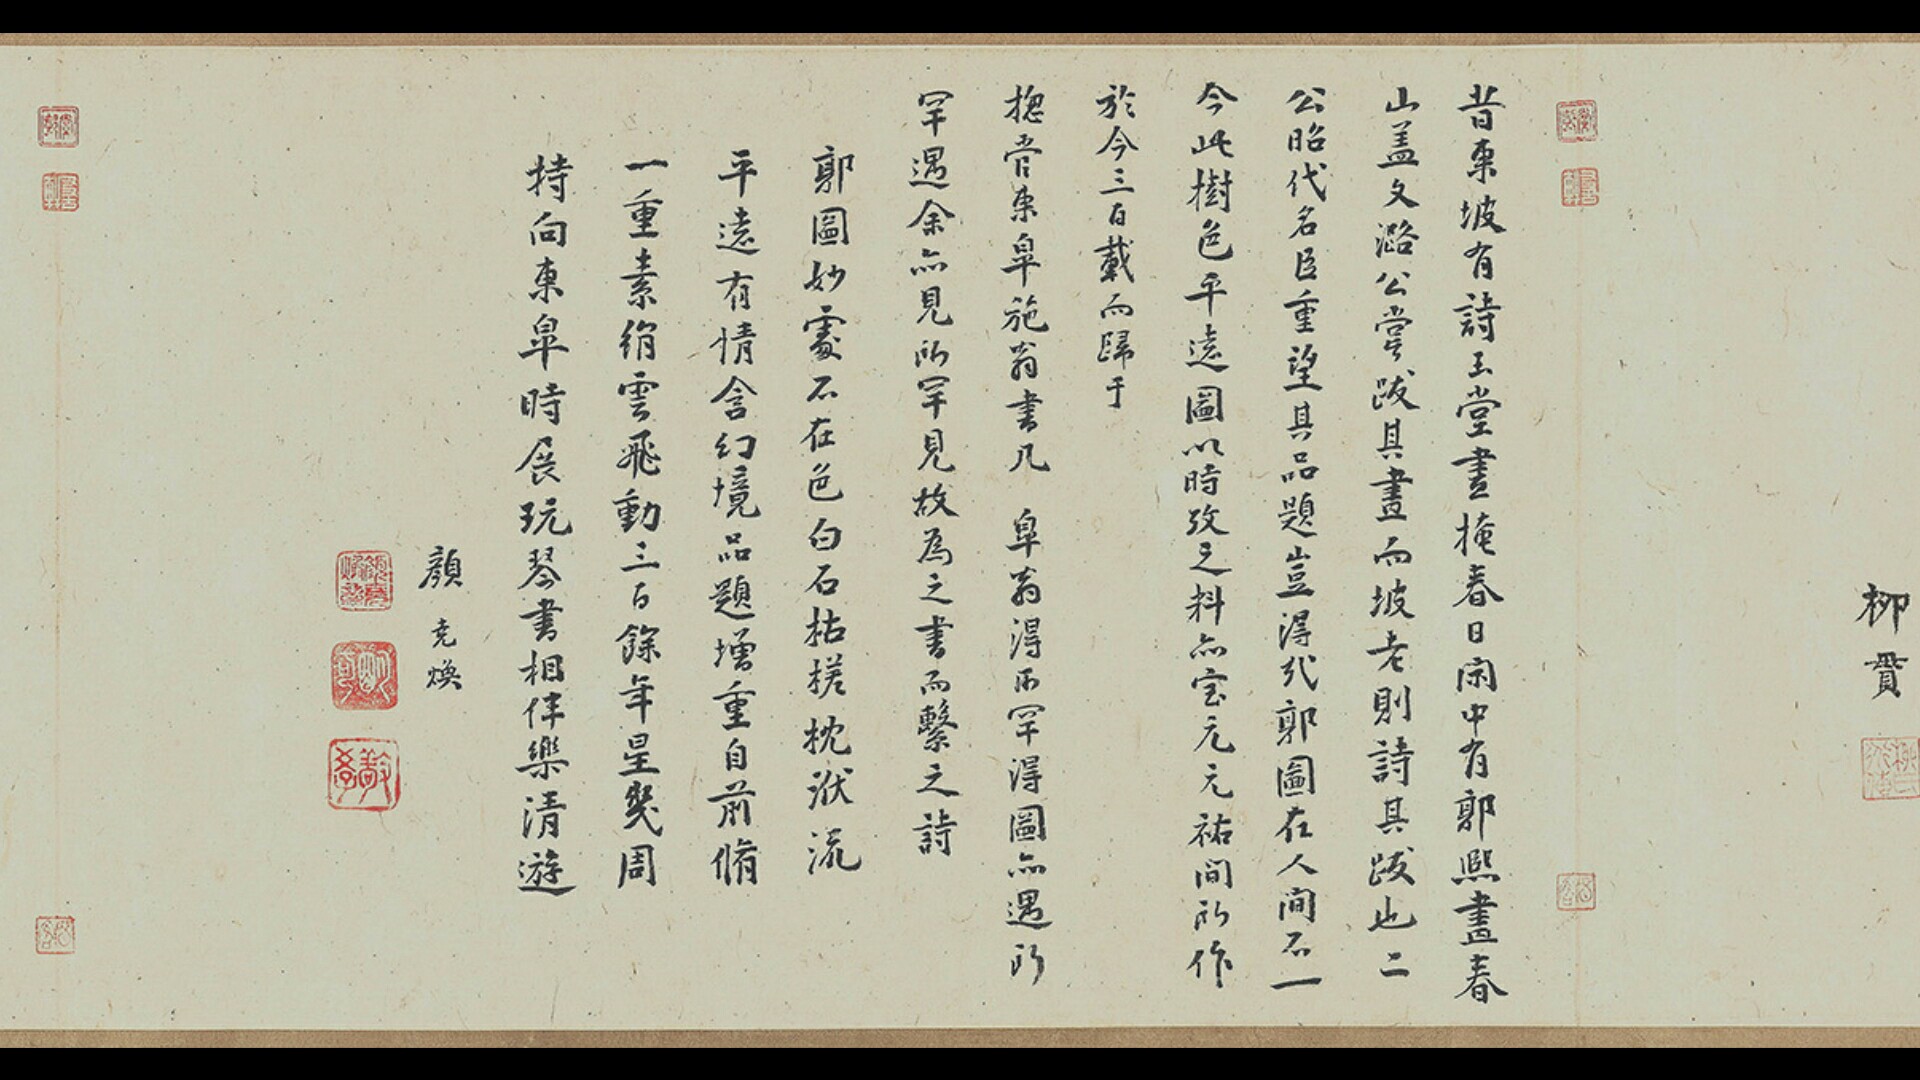 柳貫
昔東坡有詩玉堂晝掩春日閑中有郭熙畫春
山盖文潞公嘗跋其畫而坡老則詩其跋也二
公昭代名臣重望其品題豈得哉郭圖在人間不一
今此樹色平遠圖以時攷之料亦宝元元祐間所作
於今三百載而歸于
揔管東皐施翁書几 皐翁得所罕得圖亦遇所
罕遇余亦見所罕見故為之書而繫之詩
郭圖妙處不在色白石枯槎枕洑流
平遠有情含幻境品題增重自前脩
一重素絹雲飛動三百餘年星㡬周
持向東皐時展玩琴書相伴樂清遊
顏堯煥